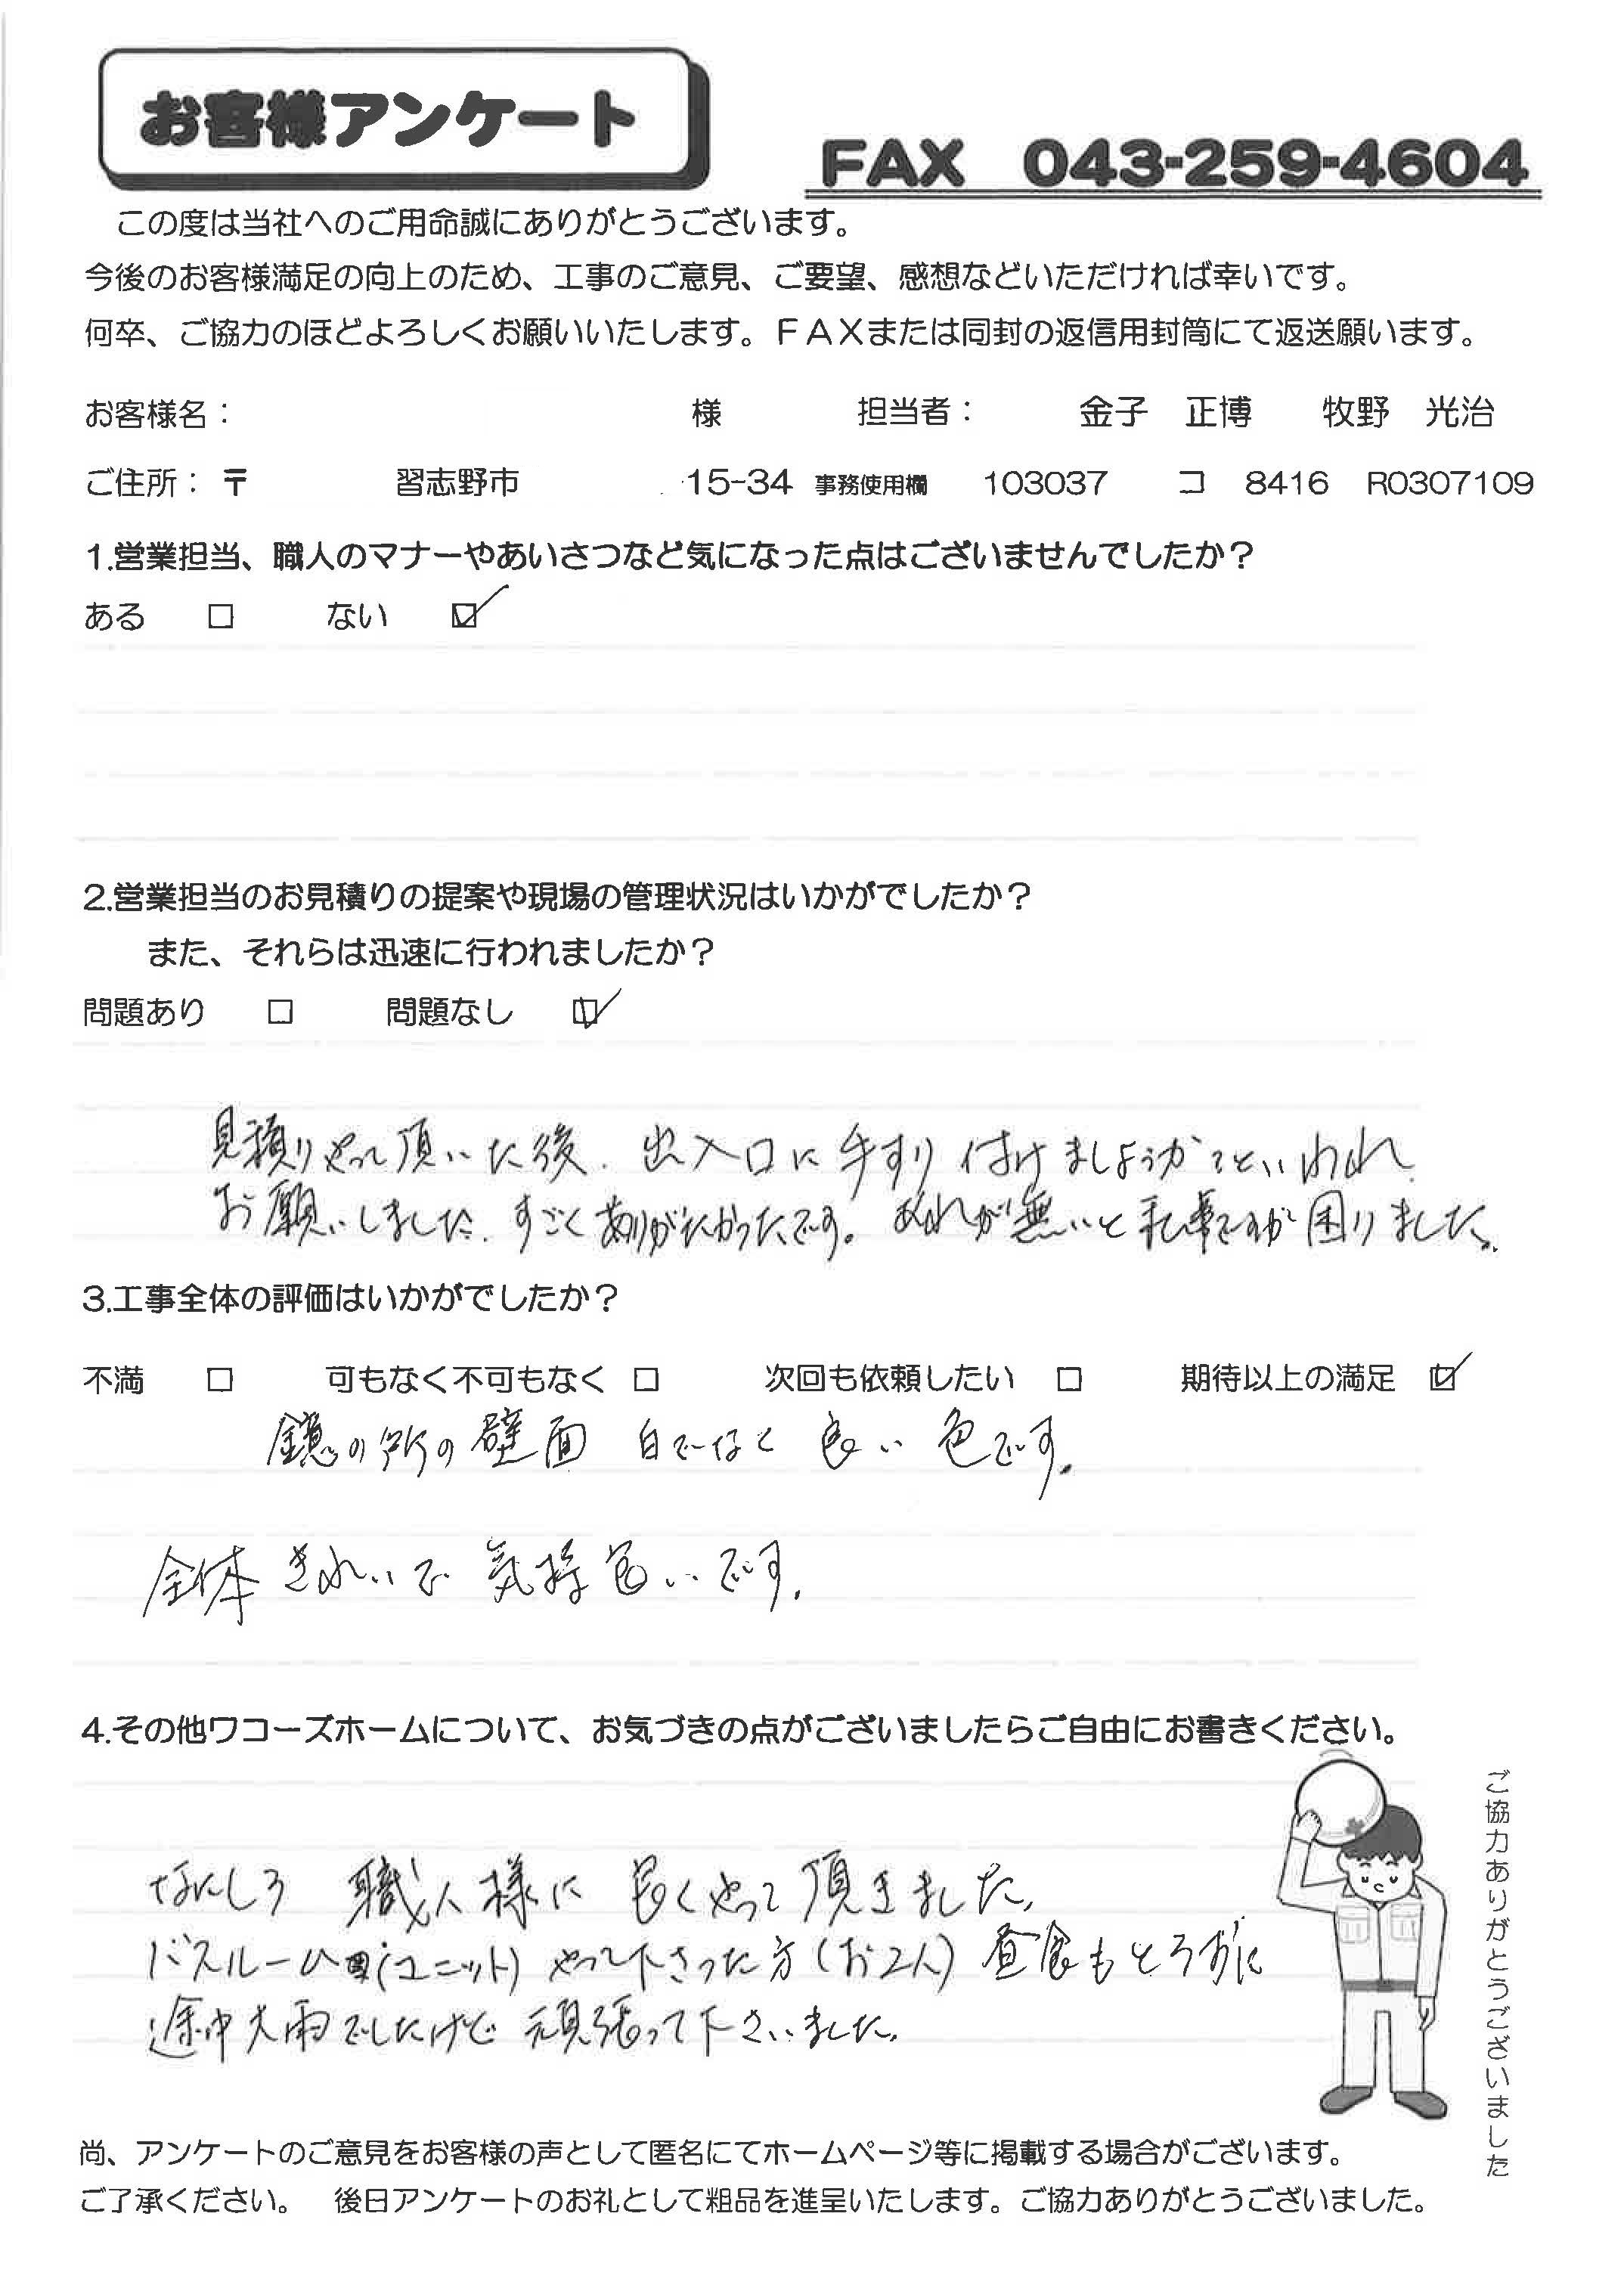 お客様アンケート
FAX 043-259-4604
この度は当社へのご用命誠にありがとうございます。
今後のお客様満足の向上のため、工事のご意見、ご要望、感想などいただければ幸いです。
何卒、ご協力のほどよろしくお願いいたします。ＦＡＸまたは同封の返信用封筒にて返送願います。
お客様名： 様 担当者： 金子 正博 牧野 光治
ご住所：〒 習志野市 15-34 事務使用欄 103037 コ 8416 R0307109
1.営業担当、職人のマナーやあいさつなど気になった点はございませんでしたか？
ある □ ない ☑
2.営業担当のお見積りの提案や現場の管理状況はいかがでしたか？
また、それらは迅速に行われましたか？
問題あり □ 問題なし ☑
見積りやって頂いた後、出入口に手すり付けましょうか？といわれ
お願いしました。すごくありがたかったです。あれが無いと私事ですが困りました。
3.工事全体の評価はいかがでしたか？
不満 □ 可もなく不可もなく □ 次回も依頼したい □ 期待以上の満足 ☑
鏡の所の壁面 白でなく 良い 色です。
全体 きれいで 気持良いです。
4.その他ワコーズホームについて、お気づきの点がございましたらご自由にお書きください。
なにしろ 職人様に 良くやって頂きました。
バスルーム(ユニット) やって下さった方(お2人) 昼食もとらずに
途中大雨でしたけど 頑張って下さいました。
ご協力ありがとうございました
尚、アンケートのご意見をお客様の声として匿名にてホームページ等に掲載する場合がございます。
ご了承ください。 後日アンケートのお礼として粗品を進呈いたします。ご協力ありがとうございました。